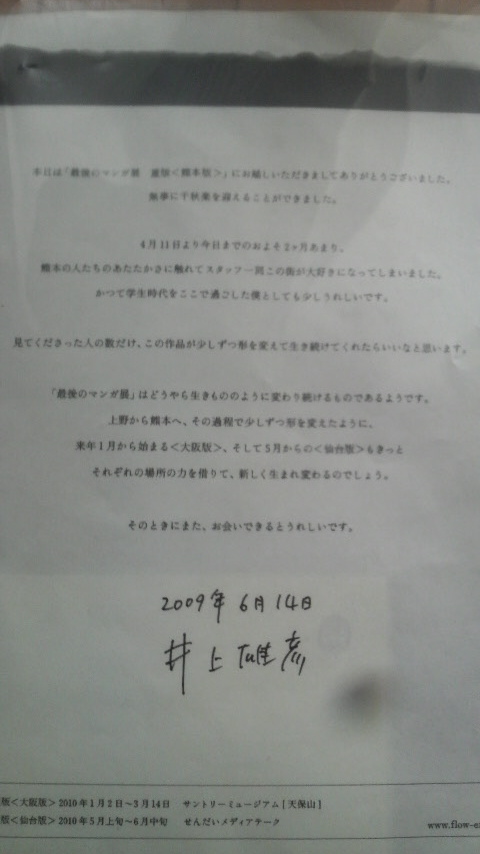 本日は「最後のマンガ展　重版＜熊本版＞」にお越しいただきましてありがとうございました。
無事に千秋楽を迎えることができました。
4月11日より今日までのおよそ2ヶ月あまり、
熊本の人たちのあたたかさに触れてスタッフ一同この街が大好きになってしまいました。
かつて学生時代をここで過ごした僕としても少しうれしいです。
見てくださった人の数だけ、この作品が少しずつ形を変えて生き続けてくれたらいいなと思います。
「最後のマンガ展」はどうやら生きもののように変わり続けるものであるようです。
上野から熊本へ、その過程で少しずつ形を変えたように、
来年1月から始まる＜大阪版＞、そして5月からの＜仙台版＞もきっと
それぞれの場所の力を借りて、新しく生まれ変わるのでしょう。
そのときにまた、お会いできるとうれしいです。
2009年 6月 14日
井上雄彦
版＜大阪版＞2010年1月2日～3月14日　サントリーミュージアム[天保山]
版＜仙台版＞2010年5月上旬～6月中旬　せんだいメディアテーク
www.flow-e